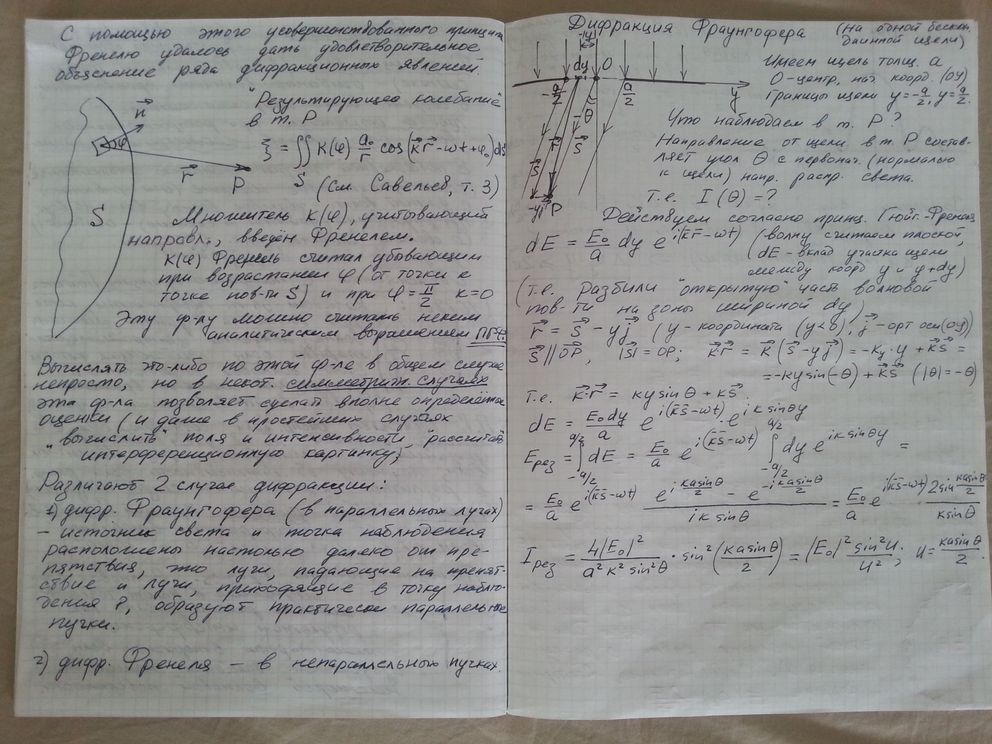 С помощью этого усовершенствованного принципа
Френелю удалось дать удовлетворительное
объяснение ряда дифракционных явлений.
"Результирующее колебание"
в т. P
ξ = ∬ K(φ) a₀/r cos(k⃗r⃗ - ωt + φ₀) dS
S
(см. Савельев, т. 3)
n⃗
φ
r⃗
P
S
Множитель K(φ), учитывающий
направл., введён Френелем.
K(φ) Френель считал убывающим
при возрастании φ (от точки к
точке пов-ти S) и при φ = π/2 K=0
Эту ф-лу можно считать неким
аналитическим выражением
Вычислять что-либо по этой ф-ле в общем случае
непросто, но в некот. симметрич. случаях
эта ф-ла позволяет сделать вполне определённые
оценки (и даже в простейших случаях
"вычислить" поля и интенсивности, "рассчитать
интерференционную картинку")
Различают 2 случая дифракции:
1) дифр. Фраунгофера (в параллельных лучах)
– источник света и точка наблюдения
расположены настолько далеко от пре-
пятствия, что лучи, падающие на препят-
ствие и лучи, приходящие в точку наблю-
дения P, образуют практически параллельные
пучки.
2) дифр. Френеля – в непараллельных пучках.
Дифракция Фраунгофера (на одной беско-
длинной щели)
-y
dy
O
-a/2
a/2
y
-θ
r⃗
s⃗
s⃗
-yj⃗
P
Имеем щель толщ. a
O-центр, нач. коорд. (OY)
Границы щели y=-a/2, y=a/2.
Что наблюдаем в т. P?
Направление от щели в т. P состав-
ляет угол θ с первонач. (нормалью
к щели) напр. распр. света.
Т.е. I(θ) = ?
Действуем согласно принц. Гюйг.-Френеля
dE = E₀/a dy e^{i(k⃗r⃗-ωt)} (волну считаем плоской,
dE - вклад участка щели
между коорд y и y+dy)
(т.е. Разбили "открытую" часть волновой
пов-ти на зоны шириной dy)
r⃗ = s⃗ - yj⃗ (y - координата (y<0), j⃗ - орт оси (OY))
s⃗ || OP⃗, |s⃗| = OP; k⃗·r⃗ = k⃗(s⃗ - yj⃗) = -k_y·y + k⃗s⃗ =
= -ky sin(-θ) + k⃗s⃗ (|θ| = -θ)
Т.е. k⃗·r⃗ = ky sinθ + k⃗s⃗.
dE = E₀dy/a e^{i(k⃗s⃗-ωt)} · e^{ik sinθy}
E_рез = ∫_{-a/2}^{a/2} dE = E₀/a e^{i(k⃗s⃗-ωt)} ∫_{-a/2}^{a/2} dy e^{ik sinθy} =
= E₀/a e^{i(k⃗s⃗-ωt)} (e^{i ka sinθ/2} - e^{-i ka sinθ/2})/(ik sinθ) = E₀/a e^{i(k⃗s⃗-ωt)} (2 sin (ka sinθ/2))/(k sinθ)
I_рез = 4|E₀|²/(a²k² sin²θ) · sin²(ka sinθ/2) = |E₀|² sin²u/u², u = ka sinθ/2.